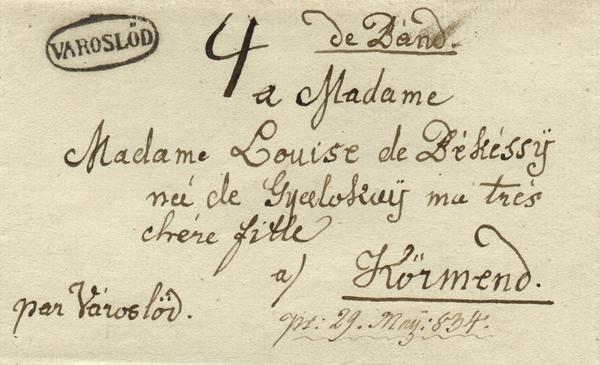 VAROSLÖD
4
de Bánd.
a Madame
Madame Louise de Békéssÿ
neé de Gyalokaÿ ma trés
chére fille
a) Körmend.
par Városlöd.
pr: 29. Maÿ: 834.